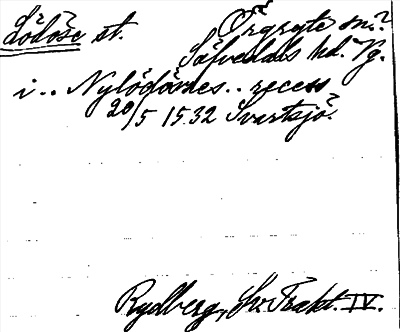 Lödöse st. Örgryte sn.?
Säfvedals hd. Vg.
i.. Nylödöses.. recess
20/5 1532 Svartsjö.
Rydberg, Sv. Trakt. IV.